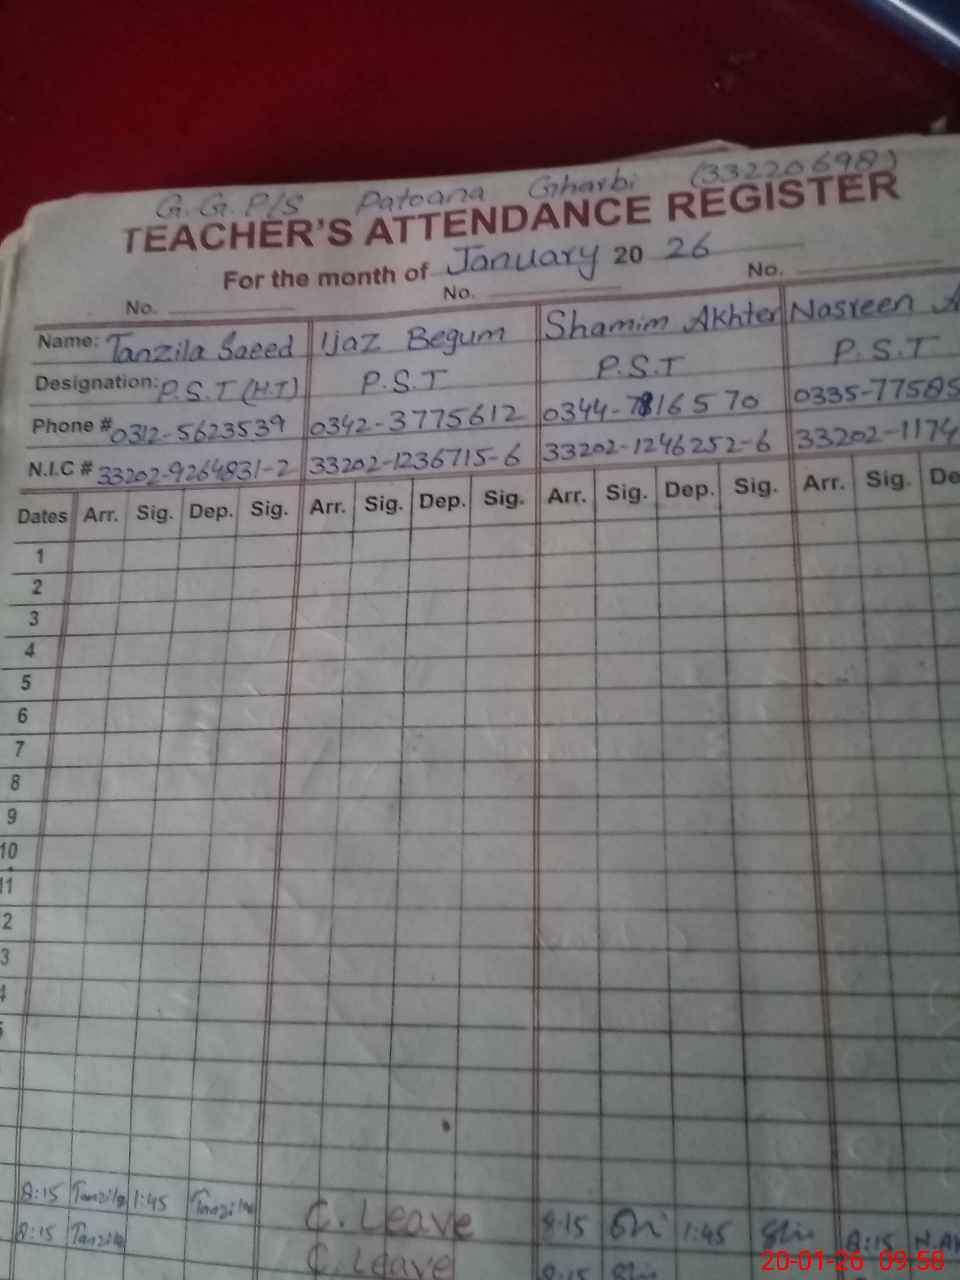 G.G.P/S Patoana Gharbi (33220698)
TEACHER'S ATTENDANCE REGISTER
For the month of January 20 26
No. No. No.
Name: Tanzila Saeed Ijaz Begum Shamim Akhter Nasreen A
Designation: P.S.T (H.T) P.S.T P.S.T P.S.T
Phone # 0312-5623539 0342-3775612 0344-7816570 0335-77585
N.I.C # 33202-9264831-2 33202-1236715-6 33202-1246252-6 33202-1174
Dates Arr. Sig. Dep. Sig. Arr. Sig. Dep. Sig. Arr. Sig. Dep. Sig. Arr. Sig. De
1
2
3
4
5
6
7
8
9
10
11
2
3
4
5
8:15 Tanzila 1:45 Tanzila C. Leave 8:15 1:45 8:15 N.A
8:15 Tanzila C. Leave 8:15
20-01-26 09:58